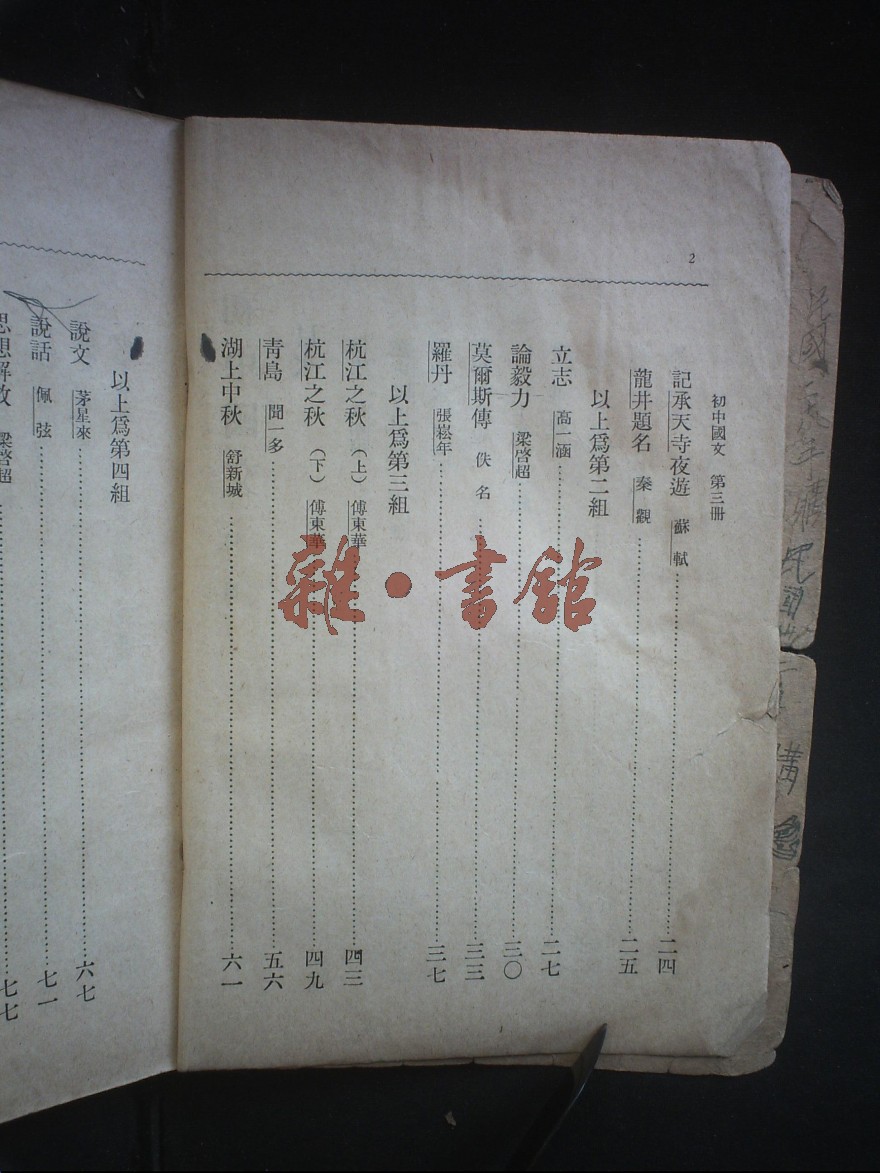 2
初中國文 第三冊
記承天寺夜遊 蘇軾 二四
龍井題名 秦觀 二五
以上爲第二組
立志 高一涵 二七
論毅力 梁啓超 三〇
莫爾斯傳 佚名 三三
羅丹 張崧年 三七
以上爲第三組
杭江之秋（上） 傅東華 四三
杭江之秋（下） 傅東華 四九
青島 聞一多 五六
湖上中秋 舒新城 六一
以上爲第四組
說文 茅星來 六七
說話 佩弦 七一
思想解放 梁啓超 七七
雜·書館